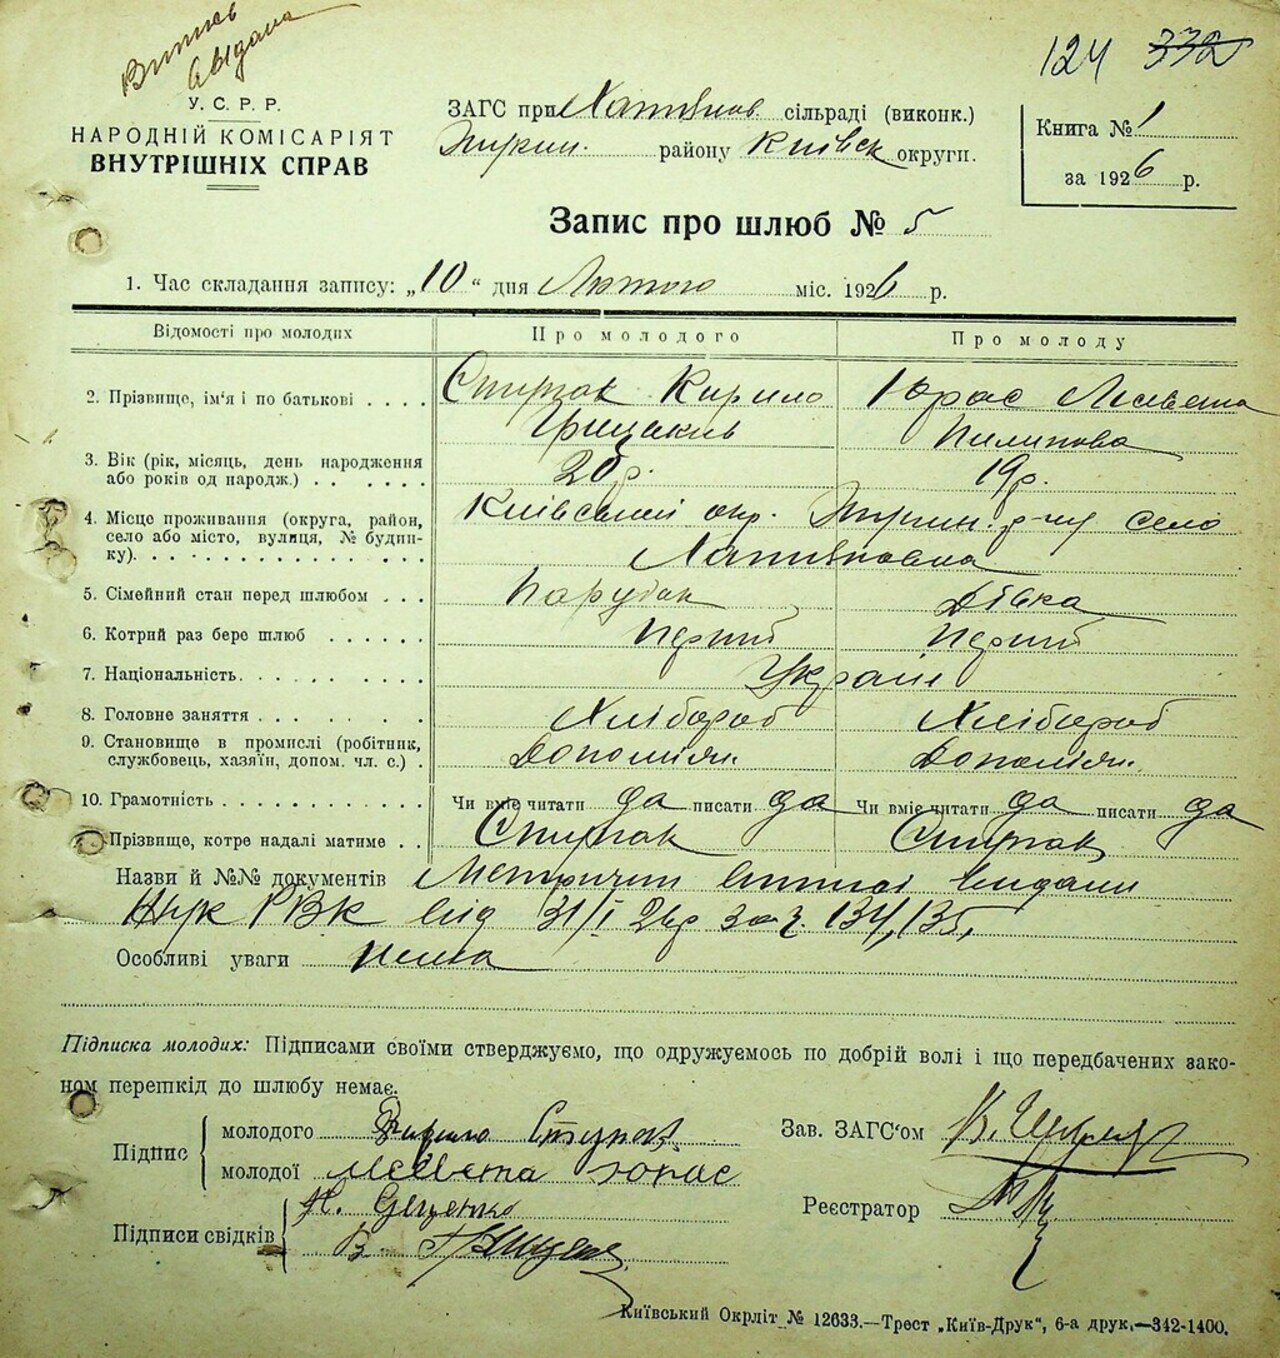 Витись
видана
124 332
У. С. Р. Р.
НАРОДНІЙ КОМІСАРІЯТ
ВНУТРІШНІХ СПРАВ
ЗАГС при сільраді (виконк.)
району Київськ округи.
Книга № 1
за 1926 р.
Запис про шлюб № 5
1. Час складання запису: „10“ дня Лютого міс. 1926 р.
Відомості про молодих Про молодого Про молоду
2. Прізвище, ім‘я і по батькові . . . . Кирило Юрас Лисавета
Грицьків Пилипова
3. Вік (рік, місяць, день народження
або років од народж.) . . . . . . . 20 р. 19 р.
4. Місце проживання (округа, район,
село або місто, вулиця, № будин-
ку). . . . . . . . . . . . . .
Київської окр. р-ну село
5. Сімейний стан перед шлюбом . . . Парубок Дівка
6. Котрий раз бере шлюб . . . . . . Перший Перший
7. Національність. . . . . . . . . . Україн
8. Головне заняття . . . . . . . Хлібороб Хлібороб
9. Становище в промислі (робітник,
службовець, хазяїн, допом. чл. с.) .
10. Грамотність . . . . . . . . . . . . Чи вміє читати да писати да Чи вміє читати да писати да
Прізвище, котре надалі матиме . .
Назви й №№ документів Метричні витиси видані
РВК від 31/I 26р за ч. 134, 135,
Особливі уваги Нема
Підписка молодих: Підписами своїми стверджуємо, що одружуємось по добрій волі і що передбачених зако-
ном перешкід до шлюбу немає.
Підпис
молодого Кирило
молодої Лисавета Юрас
Підписи свідків
Н.
В.
Зав. ЗАГС‘ом
Реєстратор
Київський Окрліт № 12633.—Трест „Київ-Друк“, 6-а друк.—342-1400.